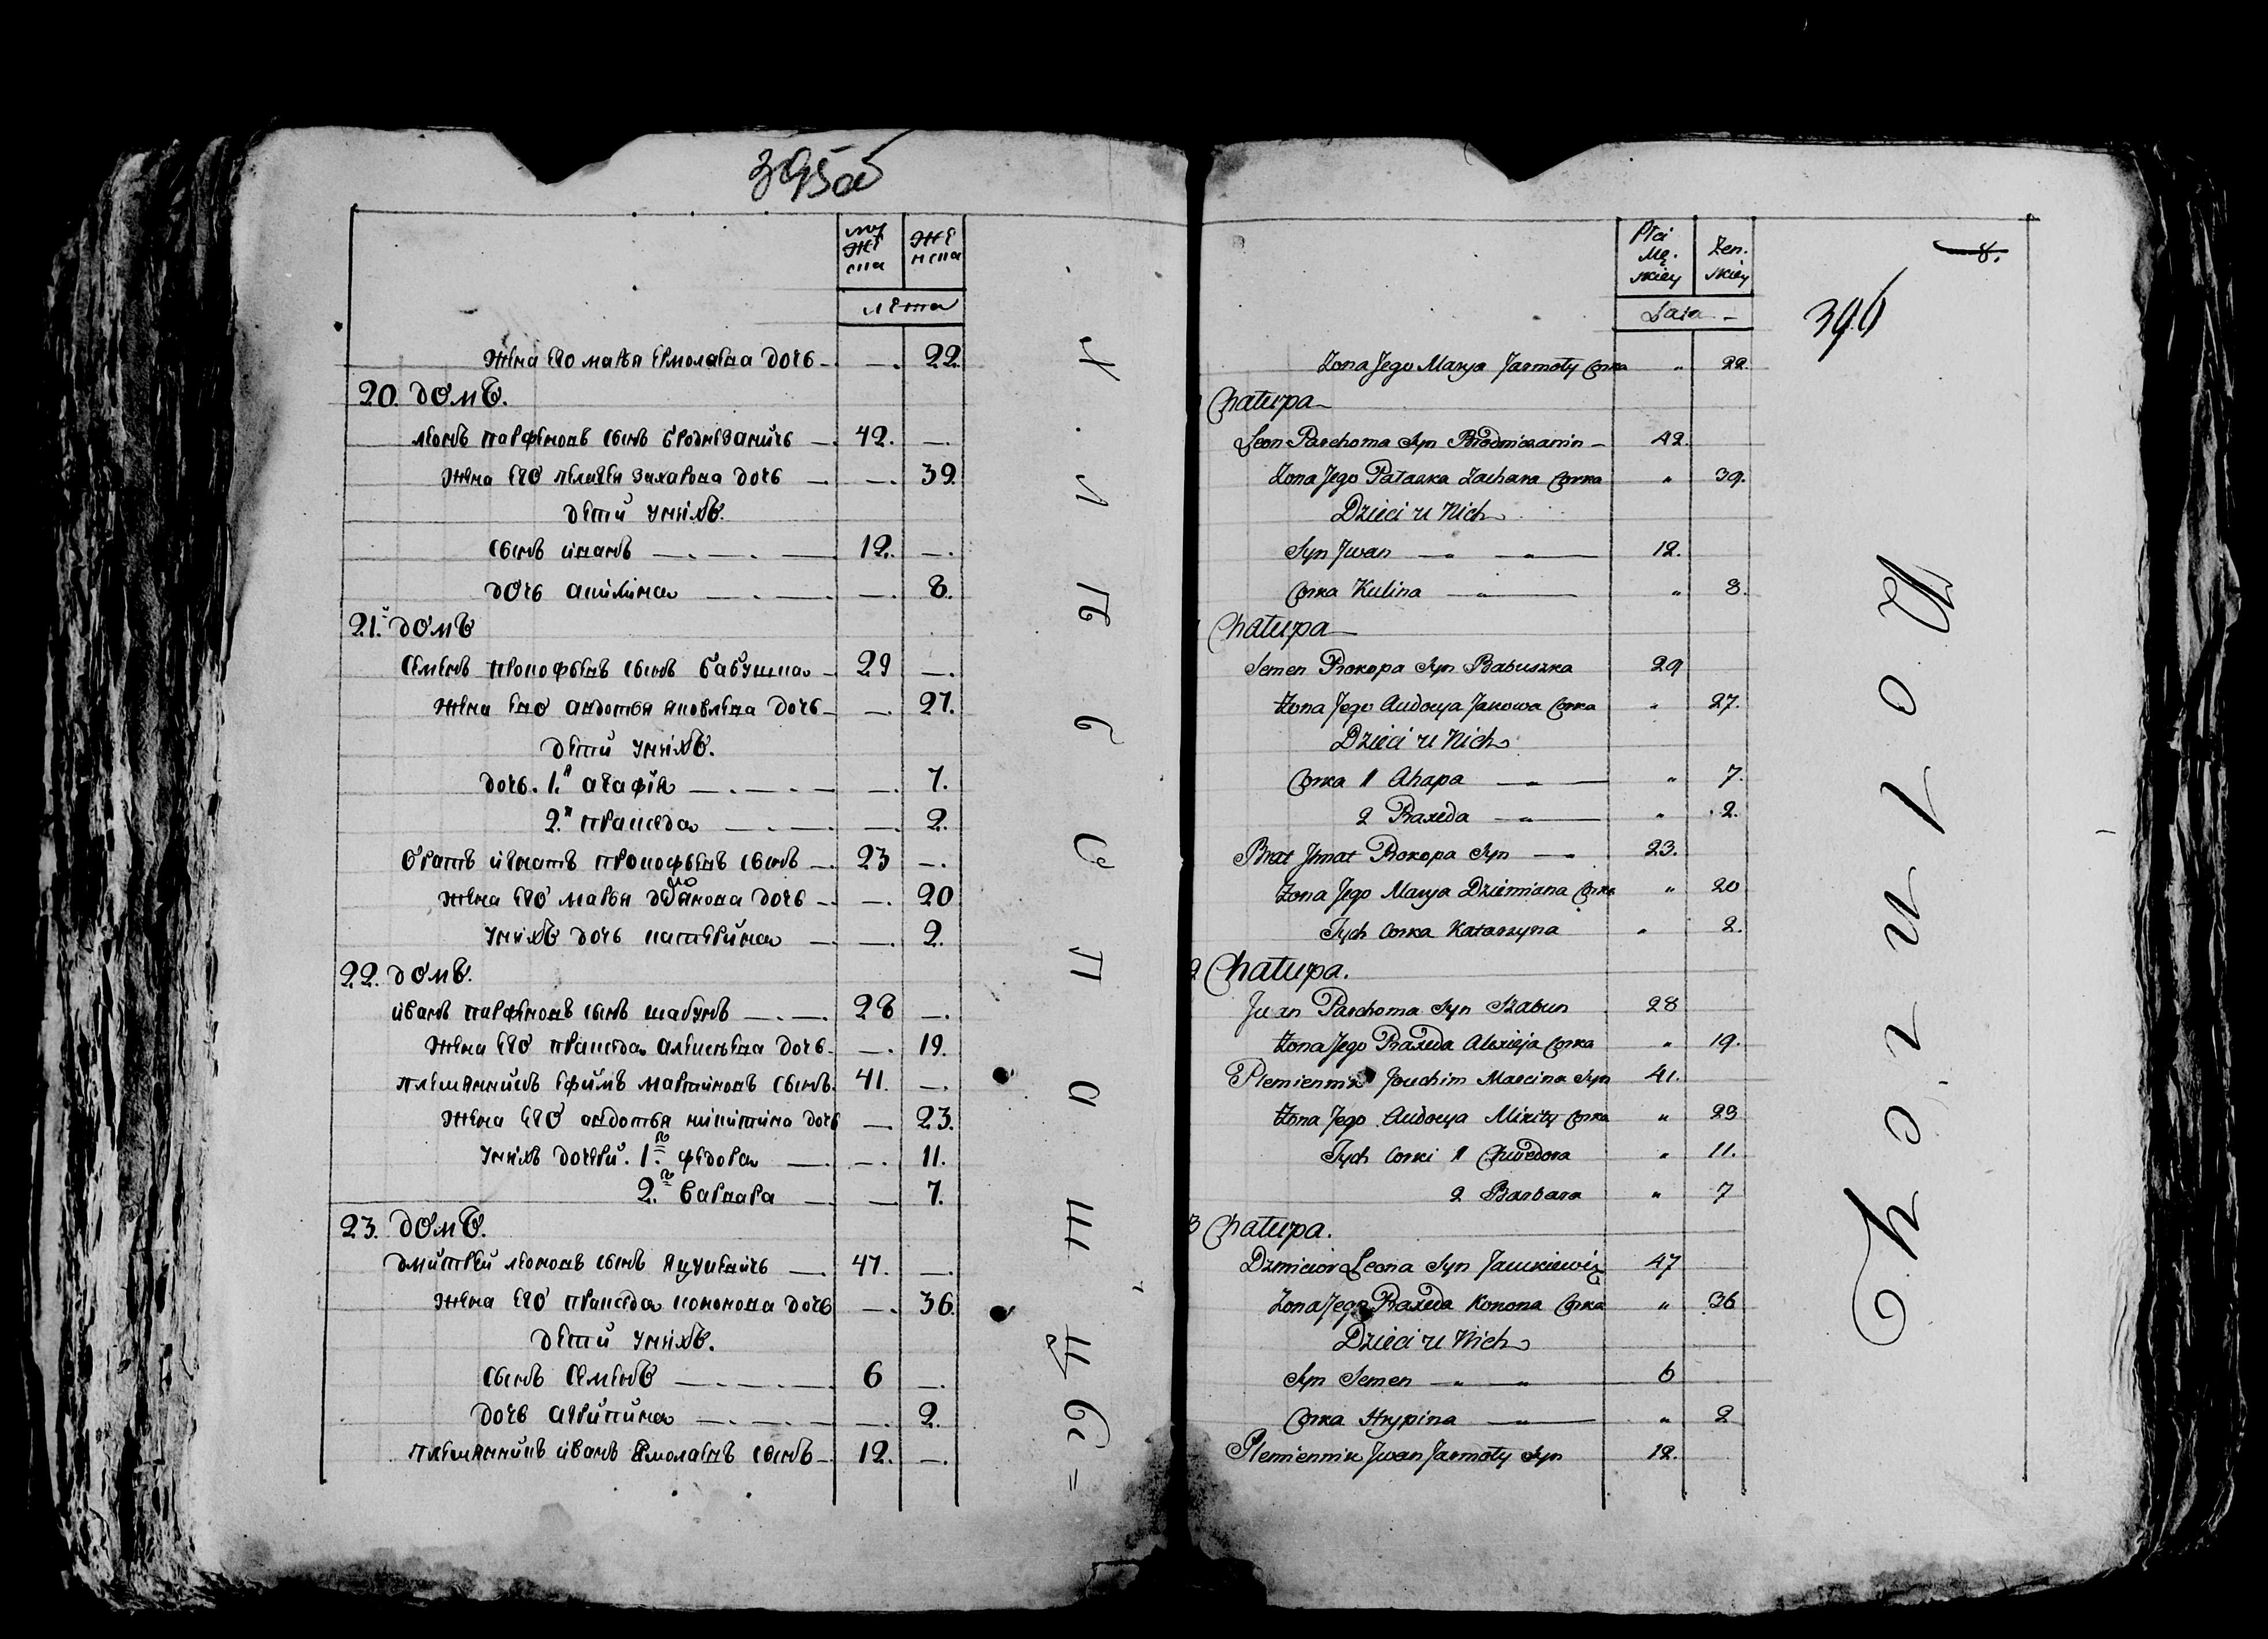 395об
мужеска
женска
лета
жена его марья ермолаева дочь — 22.
20. домъ.
леонъ парфеновъ сынъ бродневаничь — 42. —.
жена его пелагея захарова дочь — —. 39.
детй унихъ.
сынъ иванъ — 12. —.
дочь акилина — —. 8.
21.й домъ
семенъ прокофьевъ сынъ бабушка — 29 —.
жена его авдотья яковлева дочь — —. 27.
детй унихъ.
дочь. 1.я агафiя — —. 7.
2.я праседа — —. 2.
братъ игнатъ прокофьевъ сынъ — 23 —.
жена его марья демянова дочь — —. 20
унихъ дочь катерина — —. 2.
22. домъ.
иванъ парфеновъ сынъ шабунъ — 28 —.
жена его праседа алексеева дочь — —. 19.
племянникъ ефимъ мартиновъ сынъ. 41. —.
жена его авдотья никитина дочь — 23.
унихъ дочерй. 1.я федора — —. 11.
2.я варвара — — 7.
23. домъ.
дмитрей леоновъ сынъ яцукевичь — 47. —.
жена его праседа кононова дочь —. 36.
детй унихъ.
сынъ семенъ — 6 —.
дочь агрипина — —. 2.
племянникъ иванъ ермолаевъ сынъ — 12. —.
8.
396
Płci Mę. skiey
Żen. skiey
Lata —
Zona Jego Marya Jarmoły Corka „ 22.
Chałupa
Leon Parchoma Syn Brodniczanin — 42.
Zona Jego Pałaska Zachara Corka „ 39.
Dzieci u Nich
Syn Jwan — 12.
Corka Kulina — „ 8.
Chałupa
Semen Prokopa Syn Babuszka 29
Zona Jego Audocya Jakowa Corka „ 27.
Dzieci u Nich
Corka 1 Ahapa — „ 7.
2 Praxeda — „ 2.
Brat Jhnat Prokopa Syn — 23.
Zona Jego Marya Dziemiana Corka „ 20
Tych Corka Katarzyna „ 2.
2 Chałupa.
Jwan Parchoma Syn Szabun 28
Zona Jego Praxeda Alexieja Corka „ 19.
Plemiennik Jouchim Marcina Syn 41.
Zona Jego Audocya Mikity Corka „ 23
Tych Corki 1 Chwedora „ 11.
2 Barbara „ 7
3 Chałupa.
Dzmicior Leona Syn Jacukiewicz 47
Zona Jego Praxeda Konona Corka „ 36
Dzieci u Nich
Syn Semen — 6
Corka Hrypina — „ 2
Plemiennik Jwan Jarmoły Syn 12.